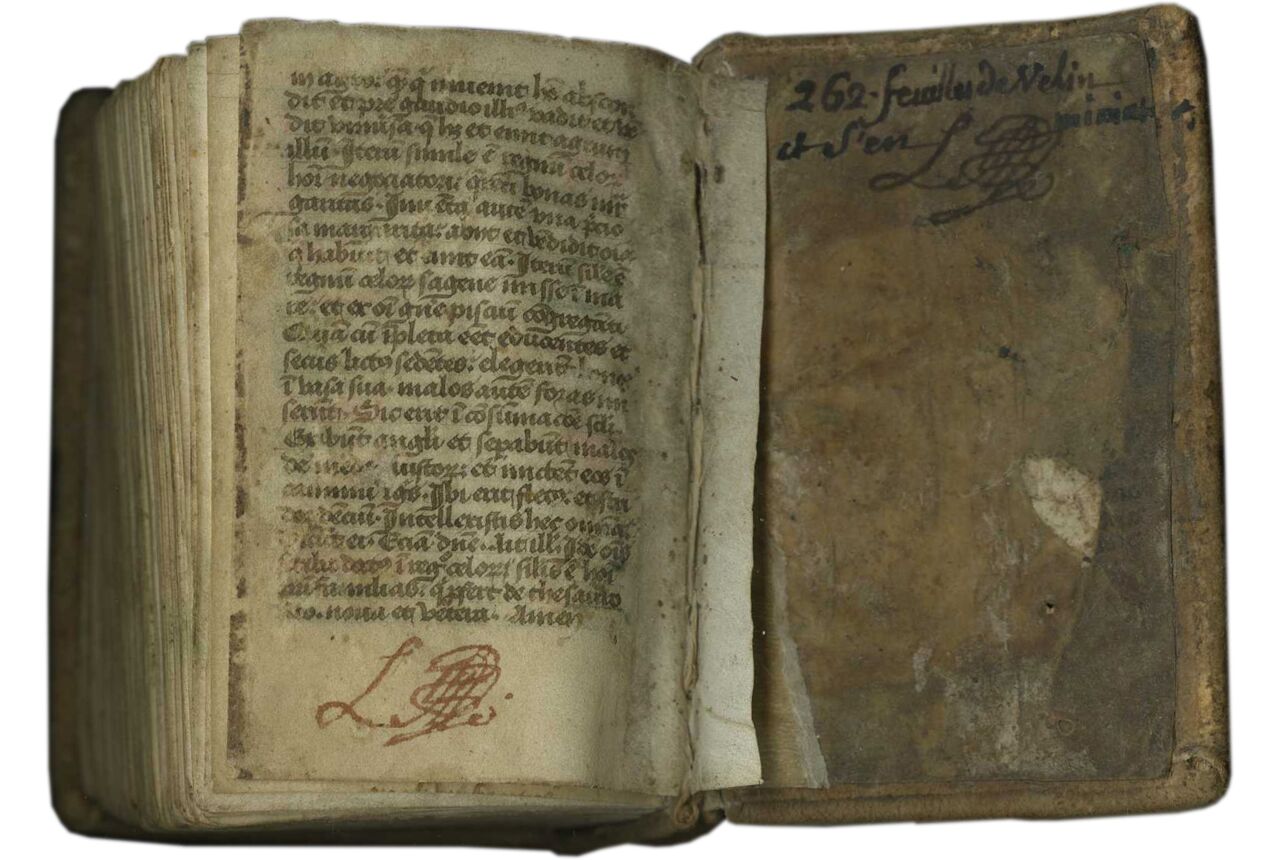 in agro. qͥ qͥ inuenit hō abscon
dit et pre gaudio illiꝰ vadit et vē
dit vniūsa q̄ hꝫ et emit agrum
illū. Iterū simile ē regnū celoꝝ
hoī negociatori: querēti bonas mar
garitas. Inuēta autē vna p̄cio
sa margarita: abijt et vēdidit oīa
q̄ habuit: et emit eā. Iterū sile ē
regnū celoꝝ sagene misse ī ma
re: et ex oī gn̄e pisciū cōgregāti.
Quā cū īpleta eēt educentes et
secus litꝰ sedētes: elegerūt bonos
ī vasa sua. malos autē foras mi
serūt. Sic erit ī cōsumacōe scli
Exibūt angli et sepabūt malos
de medio iustoꝝ: et mittēt eos ī
caminū igīs. Ibi erit fletꝰ et stri
dor dēciū. Intellexistis hec omnia
Dicūt ei. Eciā dn̄e. Ait ill. Iō oīs
scriba doctꝰ ī reg° celoꝝ silis ē hoī
pri familias: q̄ p̄fert de thesauro
suo. noua et vetera. Amen
262. feuilles de Velin
et S'en